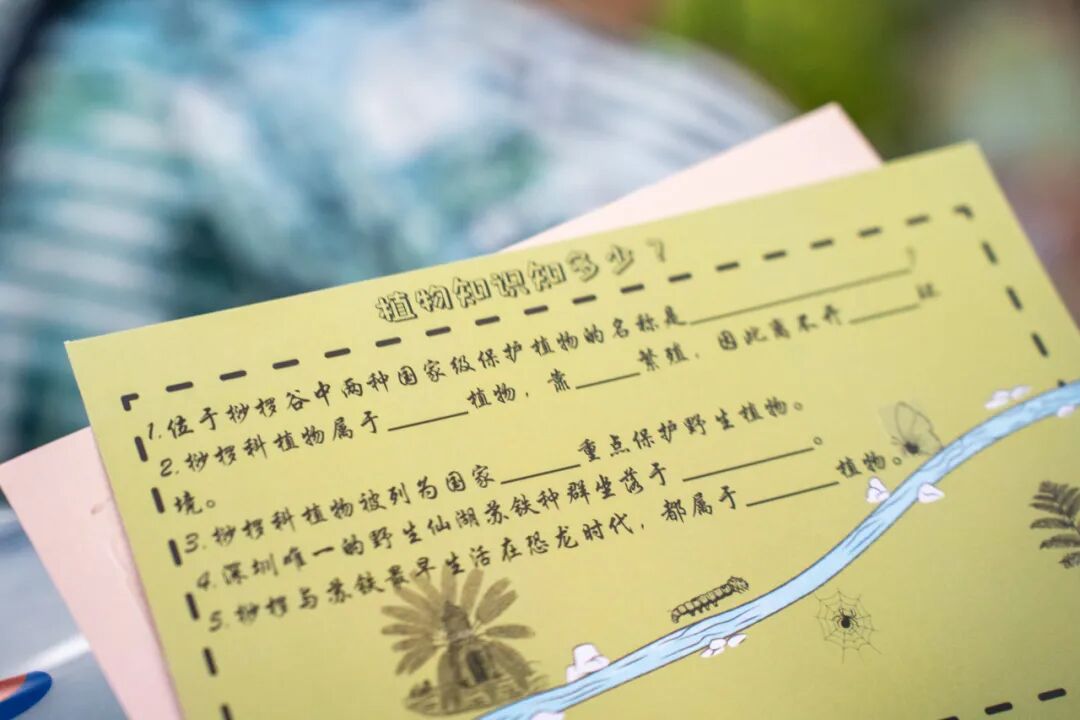 植物知识知多少？
1.位于桫椤谷中两种国家级保护植物的名称是__________，
2.桫椤科植物属于______植物，靠_____繁殖，因此离不开_____环
境。
3.桫椤科植物被列为国家______重点保护野生植物。
4.深圳唯一的野生仙湖苏铁种群坐落于__________。
5.桫椤与苏铁最早生活在恐龙时代，都属于_______植物。